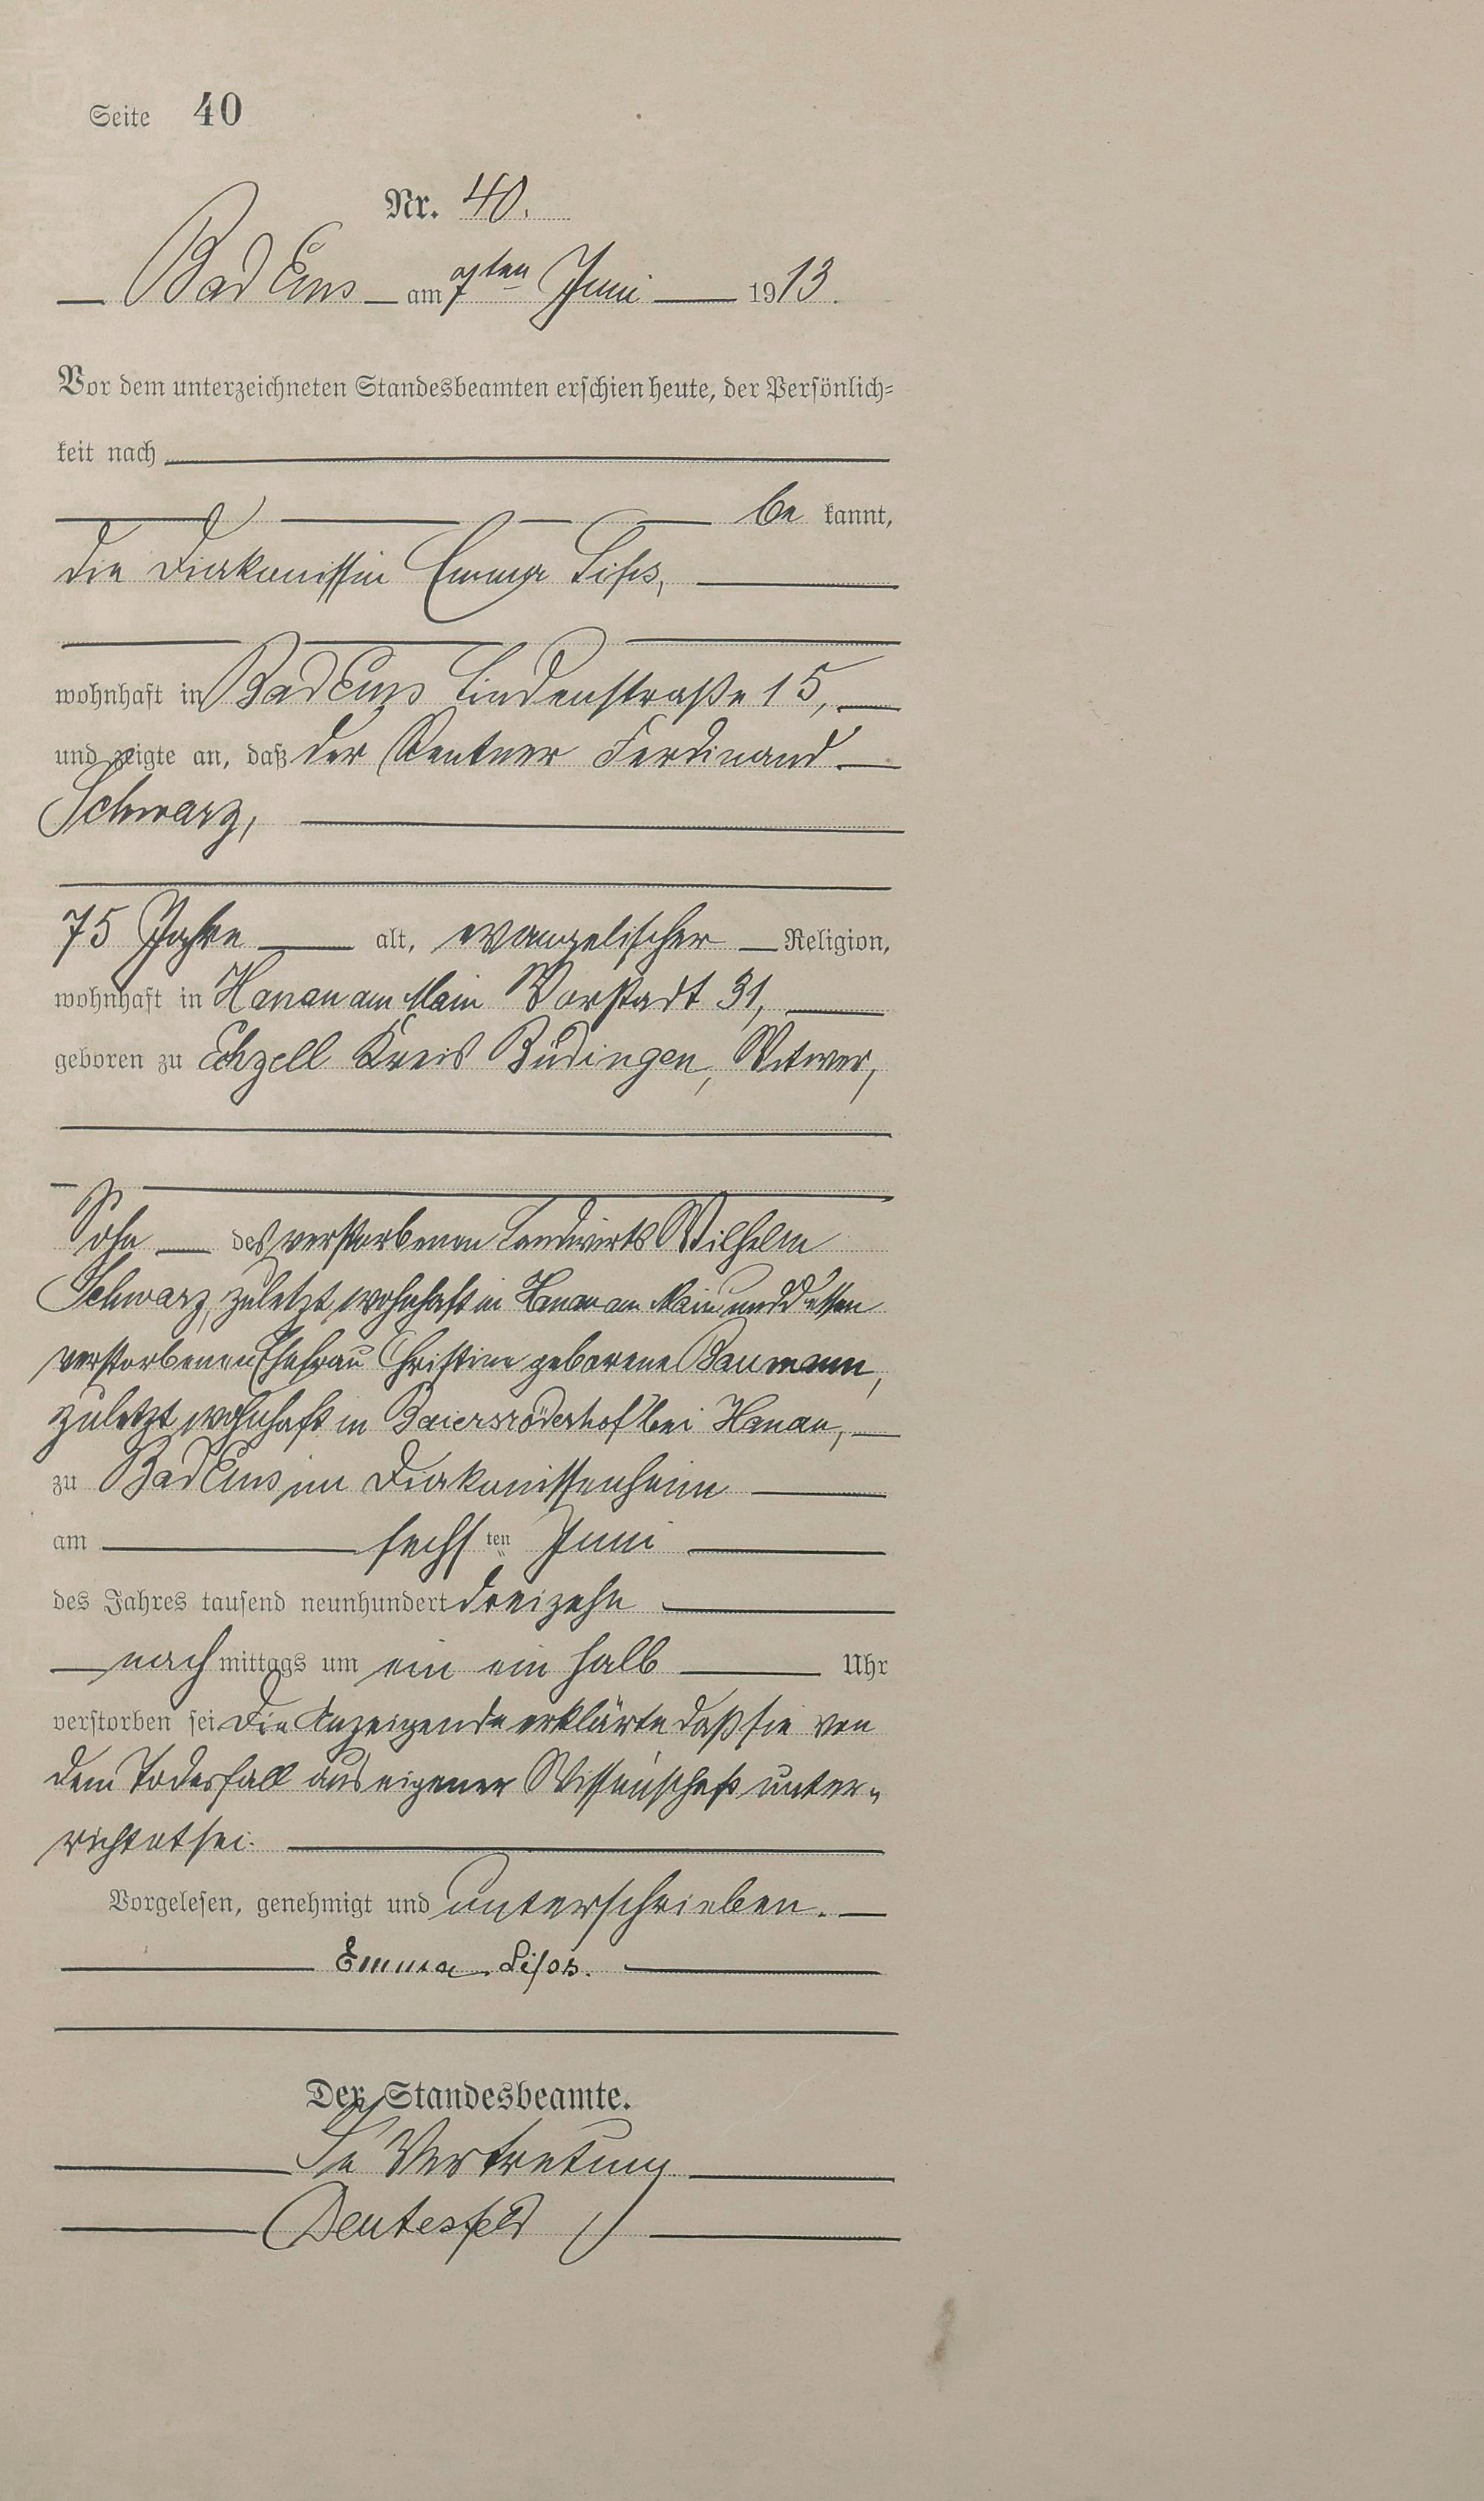 Seite 40
Nr. 40.
Bad Ems am 7ten Juni 1913.
Vor dem unterzeichneten Standesbeamten erschien heute, der Persönlich=
keit nach
be kannt,
die Diakonissin Emma
wohnhaft in Bad Ems Lindenstraße 15,
und zeigte an, daß der Rentner Ferdinand
Schwarz,
75 Jahre alt, evangelischer Religion,
wohnhaft in Hanau am Main Vorstadt 31,
geboren zu Echzell Kreis Büdingen, Witwer,
Sohn des verstorbenen Landwirts Wilhelm
Schwarz, zuletzt wohnhaft in Hanau am Main und dessen
verstorbenen Ehefrau Christine geborene Baumann,
zuletzt wohnhaft in Baiersröderhof bei Hanau,
zu Bad Ems im Diakonissenheim
am sechsten Juni
des Jahres tausend neunhundert dreizehn
nachmittags um ein ein halb Uhr
verstorben sei Die Anzeigende erklärte daß sie von
dem Todesfall aus eigener Wissenschaft unter=
richtet sei.
Vorgelesen, genehmigt und unterschrieben.
Emma
Der Standesbeamte.
In Vertretung